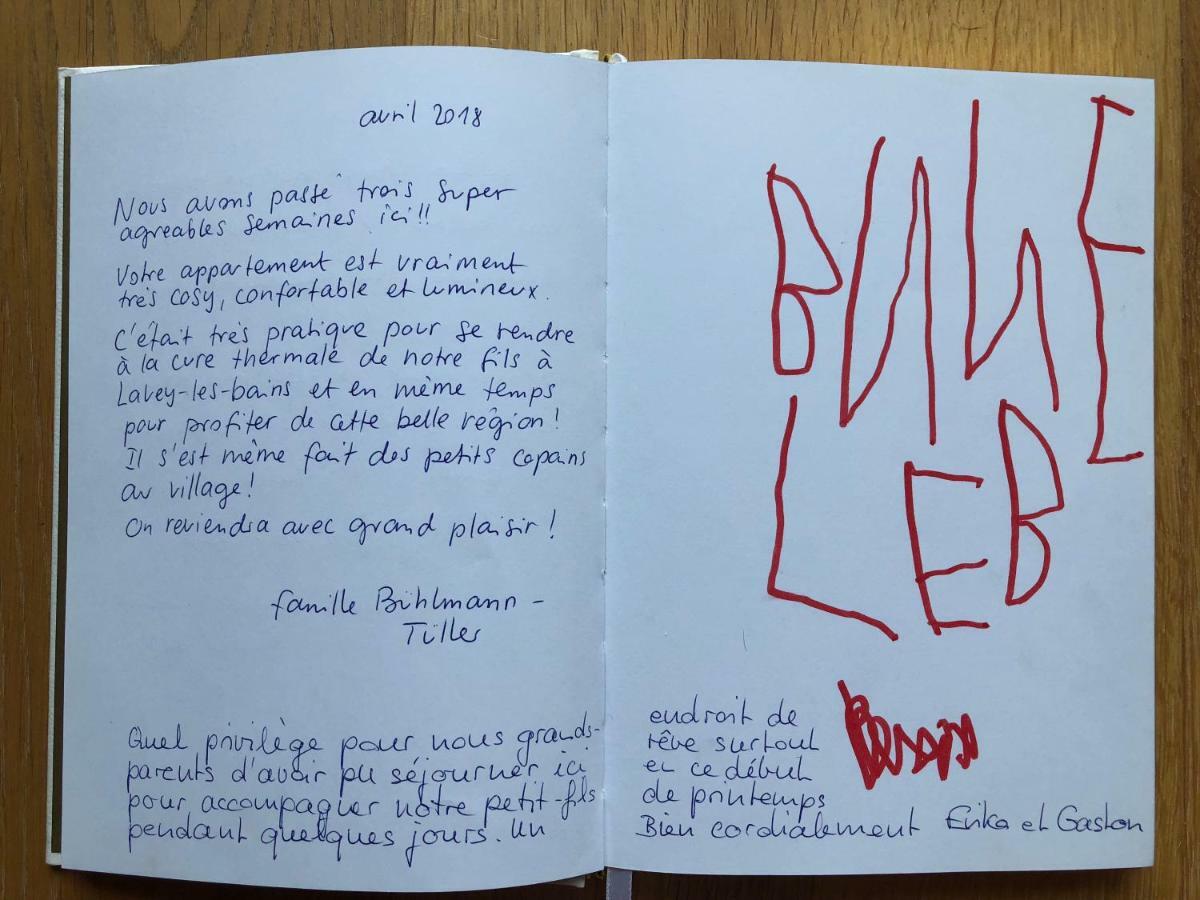 avril 2018
Nous avons passé trois super
agreables semaines ici!!
Votre appartement est vraiment
très cosy, confortable et lumineux.
C'était très pratique pour se rendre
à la cure thermale de notre fils à
Lavey-les-bains et en même temps
pour profiter de cette belle région!
Il s'est même fait des petits copains
au village!
On reviendra avec grand plaisir!
famille Bühlmann -
Tüller
Quel privilège pour nous grands-
parents d'avoir pu séjourner ici
pour accompagner notre petit-fils
pendant quelques jours. Un
LEB
endroit de
rêve surtout
en ce début
de printemps
Bien cordialement Erika et Gaston